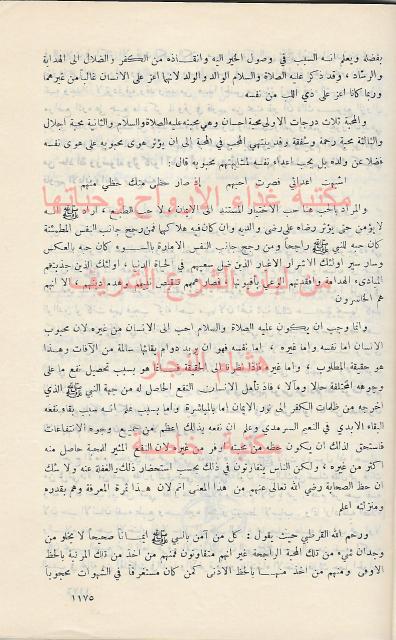 بفضله ويعلم انه السبب في وصول الخير اليه وانقاذه من الكفر والضلال الى الهداية
والرشاد ، وقد ذكر عليه الصلاة والسلام الوالد والولد لانهما اعز على الانسان غالباً من غيرهما
وربما كانا اعز على ذي اللب من نفسه .
والمحبة ثلاث درجات الاولى محبة احسان وهي محبته عليه الصلاة والسلام والثانية محبة اجلال
والثالثة محبة رحمة وشفقة وقد ينتهي المحب في المحبة الى ان يؤثر هوى محبوبه على هوى نفسه
فضلا عن ولده بل يحب اعداء نفسه لمشابهتهم محبوبه قال :
اشبهت اعدائي فصرت احبهم إذ صار حظي منك حظي منهم
مكتبة غذاء الأرواح وحياتها
والمراد بالحب هنا حب الاختيار المستند الى الايمان لا حب الطبع ، اراد ﷺ انه
لا يؤمن حتى يؤثر رضاه على رضى والديه وان كان فيه هلاكهما فمن رجح جانب النفس المطمئنة
كان حبه للنبي ﷺ راجحاً ومن رجح جانب النفس الامارة بالسوء كان حبه بالعكس
وسار سير اولئك الاشرار الاغيار الذين ضل سعيهم في الحياة الدنيا ، اولئك الذين جذبتهم
المبادىء الهدامة وافقدتهم الوعي
هم الخاسرون
وانما وجب ان يكون عليه الصلاة والسلام احب الى الانسان من غيره لان محبوب
الانسان اما نفسه واما غيره ، اما نفسه فهو ان يريد دوام بقائها سالمة من الآفات وهذا
هشام النجار
هو حقيقة المطلوب ، واما غيره فاذا نظرنا الى الحقيقة هو بسبب تحصيل نفع ما على
وجوهه المختلفة حالا ومآلا ، فاذ تأمل الانسان النفع الحاصل له من جهة النبي ﷺ الذي
اخرجه من ظلمات الكفر الى نور الايمان اما بالمباشرة واما بسبب علم انه سبب بقاء نفسه
البقاء الابدي في النعيم السرمدي وعلم ان نفعه بذلك اعظم من جميع وجوه الانتفاعات
مكتبة خاصة
فاستحق لذلك ان يكون حظه من محبته اوفر من غيره لان النفع المثير للمحبة حاصل منه
اكثر من غيره ، ولكن الناس يتفاوتون في ذلك بحسب استحضار ذلك والغفلة عنه ولا شك
ان حظ الصحابة رضي الله تعالى عنهم من هذا المعنى اتم لان هذا ثمرة المعرفة وهم بقدره
ومنزلته اعلم
ورحم الله القرطبي حيث يقول : كل من آمن بالنبي ﷺ ايماناً صحيحاً لا يخلو من
وجدان شيء من تلك المحبة الراجحة غير انهم متفاوتون فمنهم من اخذ من تلك المرتبة بالحظ
الاوفى ومنهم من اخذ منها بالحظ الادنى كمن كان مستغرقاً في الشهوات محجوباً
١١٧٥